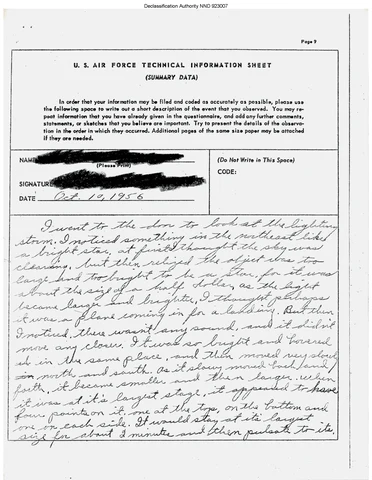 Declassification Authority NND 923007
Page 9
U. S. AIR FORCE TECHNICAL INFORMATION SHEET
(SUMMARY DATA)
In order that your information may be filed and coded as accurately as possible, please use
the following space to write out a short description of the event that you observed. You may re-
peat information that you have already given in the questionnaire, and add any further comments,
statements, or sketches that you believe are important. Try to present the details of the observa-
tion in the order in which they occurred. Additional pages of the same size paper may be attached
if they are needed.
NAME
(Please Print)
SIGNATURE
DATE Oct. 10, 1956
(Do Not Write in This Space)
CODE:
I went to the door to look at the lighting
storm. I noticed something in the southeast like
a bright star, at first thought the sky was
clearing, but then relized the object was too
large and too bright to be a star, for it was
about the size of a half dollar, as the light
became larger and brighter, I thought perhaps
it was a plane coming in for a landing. But then
I noticed, there wasn't any sound, and it didn't
move any closer. It was so bright and hovered
in the same place, and then moved very slowly
north and south. As it slowy moved back and
forth, it became smaller and then larger. When
it was at it's largest stage, it appeared to have
four points on it, one at the top, on the bottom and
one on each side. It would stay at it's largest
size for about 2 minutes and then pulsate to its.